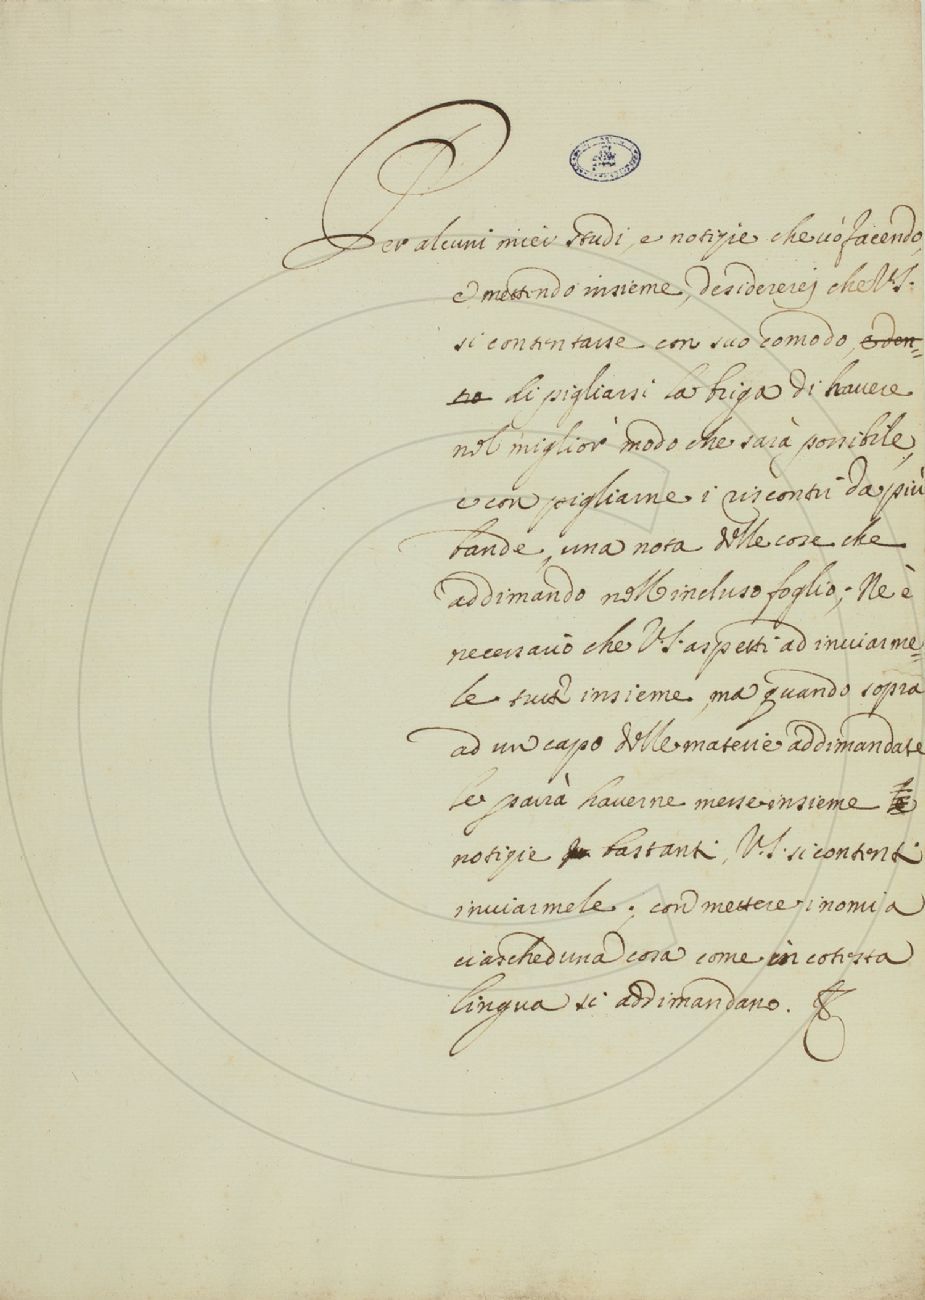 Per alcuni miei studi, e notizie che vò facendo,
e mettendo insieme, desidererej che V.S.
si contentasse con suo comodo, e den-
tro di pigliarsi la briga di havere
nel miglior modo che sarà possibile,
e con pigliarne i riscontri da più
bande, una nota delle cose che
addimando nell'incluso foglio; Ne è
necessario che V.S. aspetti ad inviarme-
le tutte insieme, ma quando sopra
ad un capo delle materie addimandate
le parrà haverne messe insieme
notizie bastanti, V.S. si contenti
inviarmele; con mettere i nomi a
ciascheduna cosa come in cotesta
lingua si addimandano.